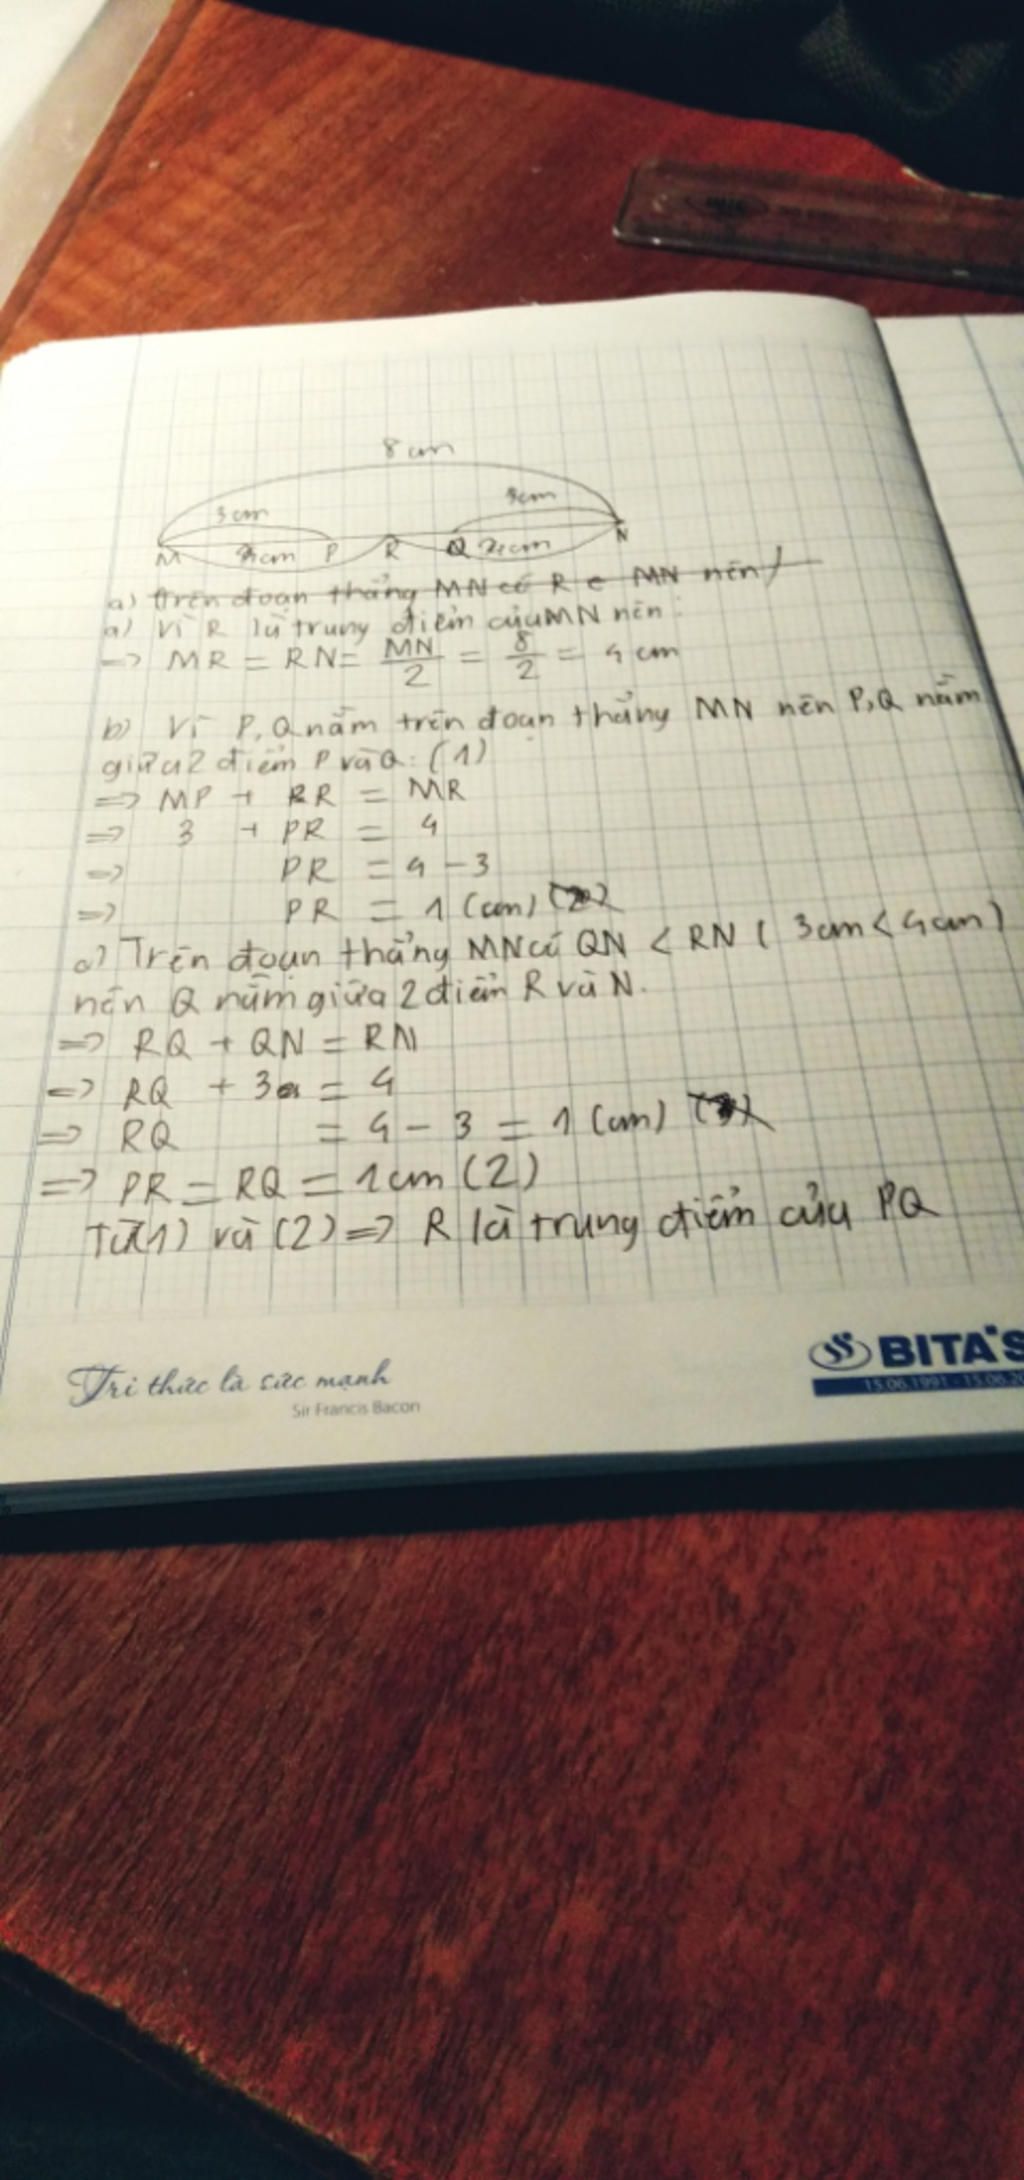 8cm
3cm
3cm
M
4cm
P
R
Q
4cm
N
a) trên đoạn thẳng MN có R e MN nên
a) Vì R là trung điểm củaMN nên:
=> MR = RN = MN/2 = 8/2 = 4 cm
b) Vì P, Q nằm trên đoạn thẳng MN nên P,Q nằm
giữa 2 điểm P và Q: (1)
=> MP + PR = MR
=> 3 + PR = 4
=> PR = 4 - 3
=> PR = 1 (cm) (2)
c) Trên đoạn thẳng MN có QN < RN ( 3cm < 4cm )
nên Q nằm giữa 2 điểm R và N.
=> RQ + QN = RN
=> RQ + 3 = 4
=> RQ = 4 - 3 = 1 (cm)
=> PR = RQ = 1cm (2)
Từ(1) và (2) => R là trung điểm của PQ
Tri thức là sức mạnh
Sir Francis Bacon
BITA'S
15.06.1991 - 15.06.20